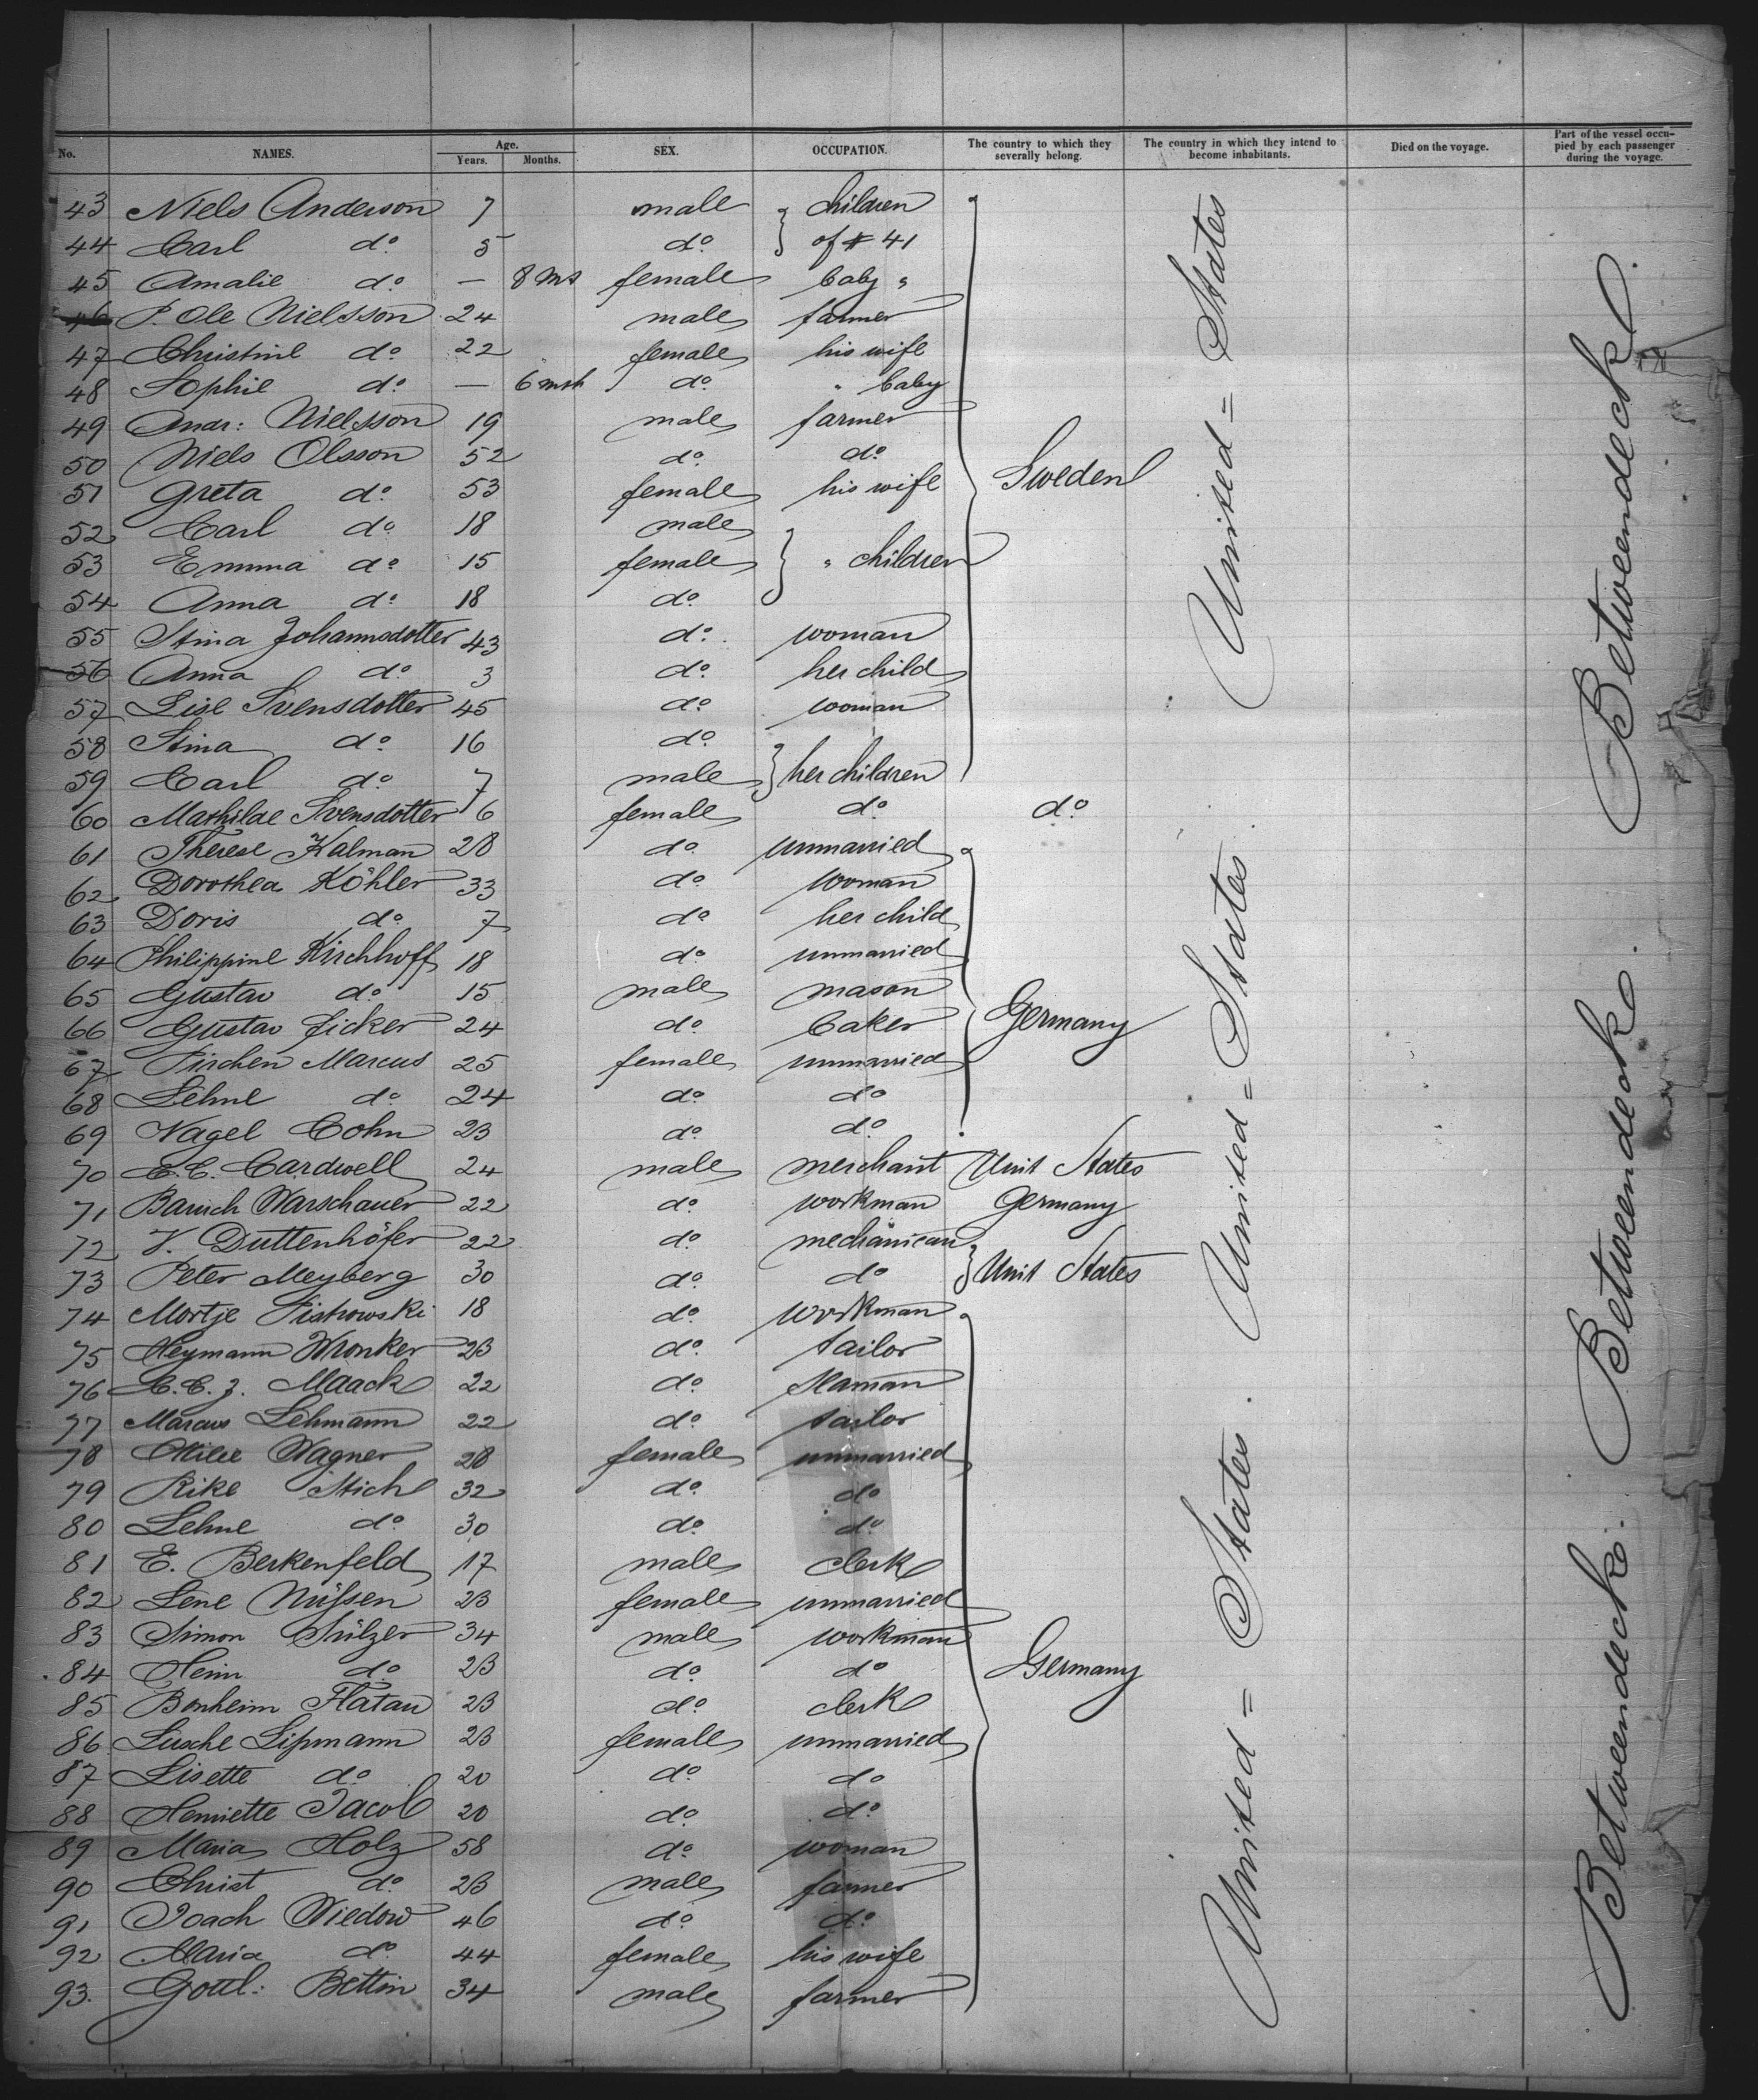 No. NAMES. Age. Years. Months. SEX. OCCUPATION. The country to which they severally belong. The country in which they intend to become inhabitants. Died on the voyage. Part of the vessel occu-pied by each passenger during the voyage.
43 Niels Anderson 7 male } children
44 Carl do 5 do } of # 41
45 Amalie do — 8 ms female baby "
46 P. Ole Nielsson 24 male farmer
47 Christine do 22 female his wife
48 Sophie do — 6 mth do " baby
49 Andr: Nielsson 19 male farmer
50 Niels Olsson 52 do do
51 Greta do 53 female his wife Sweden
52 Carl do 18 male
53 Emma do 15 female } " children
54 Anna do 18 do
55 Stina Johannsdotter 43 do woman
56 Anna do 3 do her child
57 Lise Svensdotter 45 do woman
58 Stina do 16 do
59 Carl do 7 male } her children
60 Mathilde Svensdotter 6 female do do
61 Therese Kalman 28 do unmarried
62 Dorothea Köhler 33 do woman
63 Doris do 7 do her child
64 Philippine Kirchhoff 18 do unmarried
65 Gustav do 15 male mason
66 Gustav Ficker 24 do baker Germany
67 Marcus 25 female unmarried
68 Lehne do 24 do do
69 Nagel Cohn 23 do do
70 C. C. Cardwell 24 male merchant Unit States
71 Baruch Warschauer 22 do workman Germany
72 V. Duttenhöfer 22 do mechanican
73 Peter Meyberg 30 do do } Unit States
74 Mortje 18 do workman
75 Heymann Wronker 23 do tailor
76 C. C. J. Maack 22 do seaman
77 Marcus Lehmann 22 do tailor
78 Wagner 28 female unmarried
79 Rike Stich 32 do do
80 Lehne do 30 do do
81 E. Berkenfeld 17 male clerk
82 Lene Nüssen 23 female unmarried
83 Simon Sülzer 34 male workman
84 Heim do 23 do do Germany
85 Bonheim Flatau 23 do clerk
86 Lusche Lipmann 23 female unmarried
87 Lisette do 20 do do
88 Henriette Jacob 20 do do
89 Maria Holz 58 do woman
90 Christ do 23 male farmer
91 Joach Wiedow 46 do do
92 Maria do 44 female his wife
93. Gottl: Bettin 34 male farmer
United = States
United = States
United = States
Betweendeck.
Betweendeck.
Betweendeck.